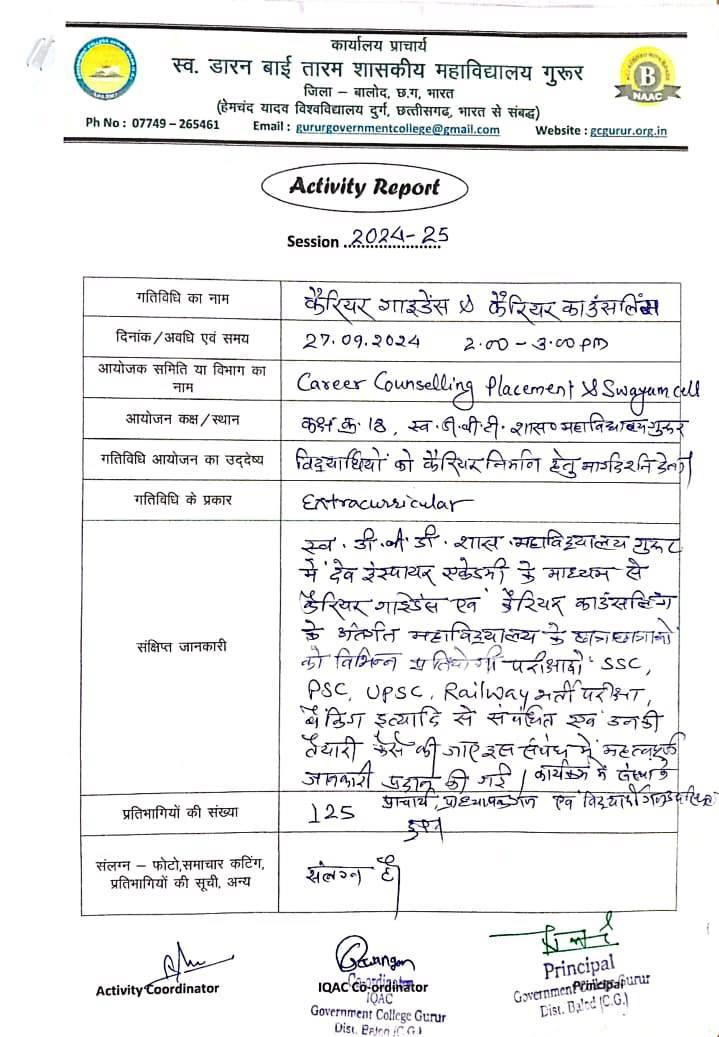 कार्यालय प्राचार्य
स्व. डारन बाई तारम शासकीय महाविद्यालय गुरूर
जिला – बालोद, छ.ग, भारत
(हेमचंद यादव विश्वविद्यालय दुर्ग, छत्तीसगढ, भारत से संबद्ध)
Ph No : 07749 – 265461 Email : gururgovernmentcollege@gmail.com Website : gcgurur.org.in
B
NAAC
Activity Report
Session 2024-25
गतिविधि का नाम
कैरियर गाइडेंस & कैरियर काउंसलिंग
दिनांक/अवधि एवं समय
27.09.2024 2:00 - 3:00 PM
आयोजक समिति या विभाग का
नाम
Career Counselling Placement & Swayam cell
आयोजन कक्ष/स्थान
कक्ष क्र. 18, स्व. डी.बी.टी. शास० महाविद्यालय गुरूर
गतिविधि आयोजन का उद्देष्य
विद्यार्थियों को कैरियर निर्माण हेतु मार्गदर्शन देना।
गतिविधि के प्रकार
Extracurricular
संक्षिप्त जानकारी
स्व. डी.बी.टी. शास. महाविद्यालय गुरूर
में देव इंस्पायर एकेडमी के माध्यम से
कैरियर गाइडेंस एवं कैरियर काउंसलिंग
के अंतर्गत महाविद्यालय के छात्रछात्राओं
को विभिन्न प्रतियोगी परीक्षाओं SSC,
PSC, UPSC, Railway भर्ती परीक्षा,
बैंकिंग इत्यादि से संबंधित एवं उनकी
तैयारी कैसे की जाए इस संबंध में महत्वपूर्ण
जानकारी प्रदान की गई। कार्यक्रम में संस्था के
प्राचार्य, प्राध्यापकगण एवं विद्यार्थीगण उपस्थित
हुए।
प्रतिभागियों की संख्या
125
संलग्न – फोटो,समाचार कटिंग,
प्रतिभागियों की सूची, अन्य
संलग्न है।
Activity Coordinator
IQAC Co-ordinator
Co-ordinator
IQAC
Government College Gurur
Dist. Balod (C.G.)
Principal
Principal
Government College Gurur
Dist. Balod (C.G.)